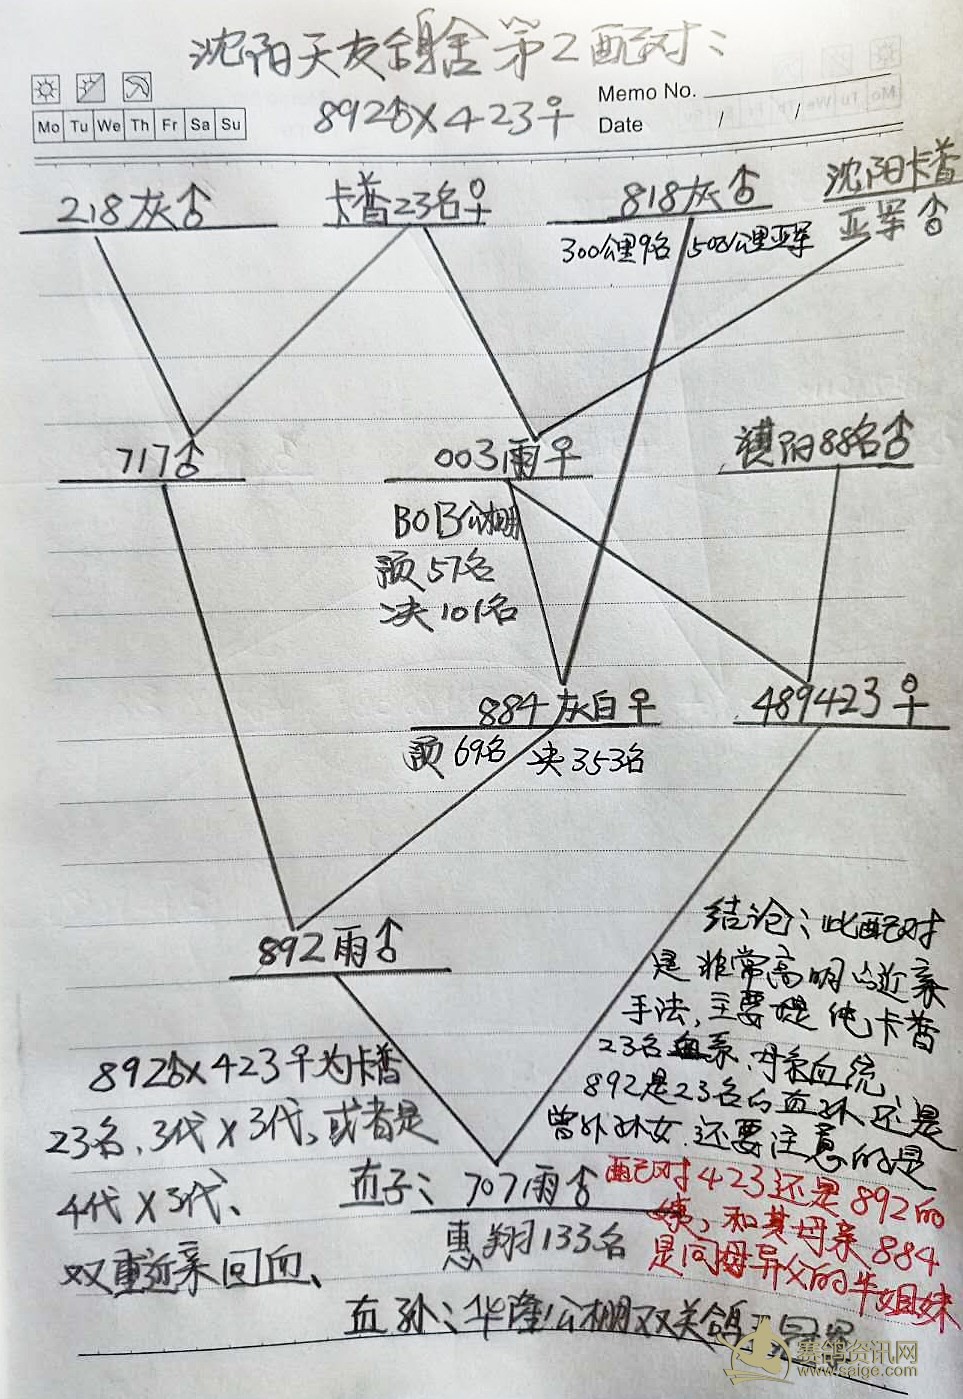 沈阳天友鸽舍第2配对:
892♂×423♀
Memo No.
Mo Tu We Th Fr Sa Su
Date / /
218灰♂
卡普23名♀
818灰♂
300公里9名 508公里亚军
沈阳卡普
亚军♂
717♂
003雨♀
BOB公棚
预57名
决101名
88名♂
884灰白♀
预69名 决353名
489423♀
892雨♂
结论:此配对
是非常高明的近亲
手法,主要是纯卡普
23名血系,母系血统
892是23名的直孙还是
曾外孙女.还要注意的是
配对423还是892的
姨,和其母亲884
是同母异父的半姐妹
892♂×423♀为卡普
23名,3代×3代,或者是
4代×3代、
双重近亲回血、
直子:707雨♂
惠翔133名
直孙:华隆公棚双关鸽王冠军
赛鸽资讯网
www.saige.com